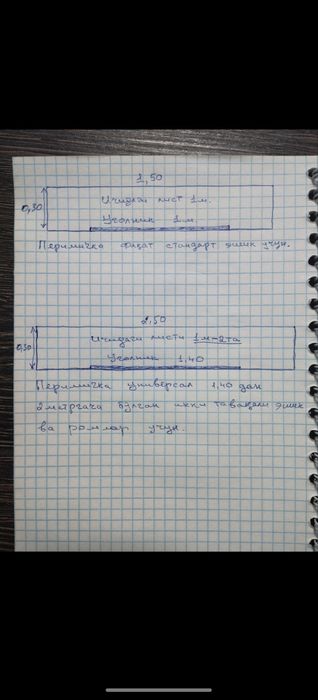 1,50
0,30
Ичидаги лист 1м.
Уголник 1м.
Перимичка фақат стандарт эшик учун.
2,50
0,30
Ичидаги листи 1м-2та
Уголник 1,40
Перимичка универсал 1,40 дан
2 метргача бўлган икки тавақали эшик
ва ромлар учун.